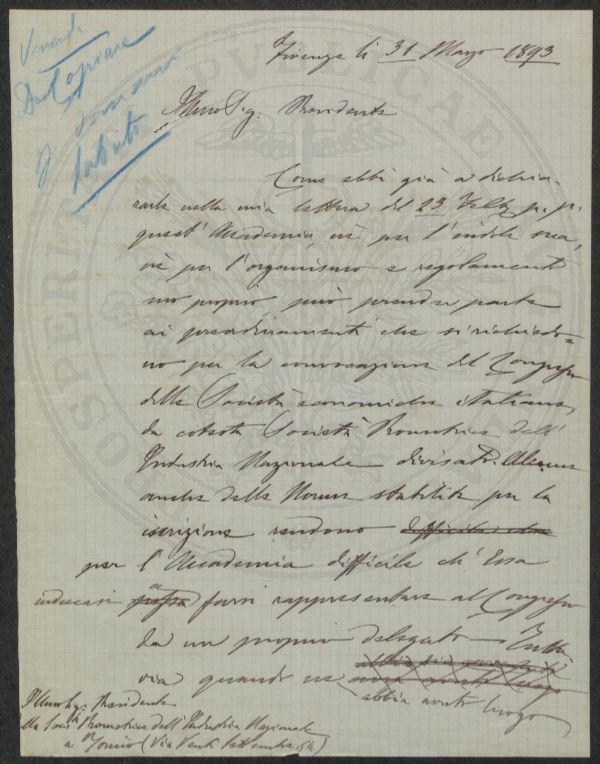 Venerdi
Da Copiare
p. domani
sabato
Firenze li 31 Marzo 1893
Illmo Sig. Presidente
Come ebbi già a dichia-
rarle nella mia lettera del 23 Febb. p. p.
quest'Accademia, nè per l'indole sua,
nè per l'organismo e regolamento
suo proprio può prendere parte
ai preordinamenti che si richiedo=
no per la convocazione del Congresso
delle Società economiche italiane,
da cotesta Società Promotrice dell'
Industria Nazionale divisato. Alcune
anche delle Norme stabilite per la
iscrizione rendono difficile
per l'Accademia difficile ch'Essa
inducasi possa a farsi rappresentare al Congresso
da un proprio delegato – Tutta
via quando ne
abbia avuto luogo
Illmo Sig. Presidente
della Soc. Promotrice dell'Industria Nazionale
a Torino (Via Venti Settembre
PROSPERITATI PUBLICAE